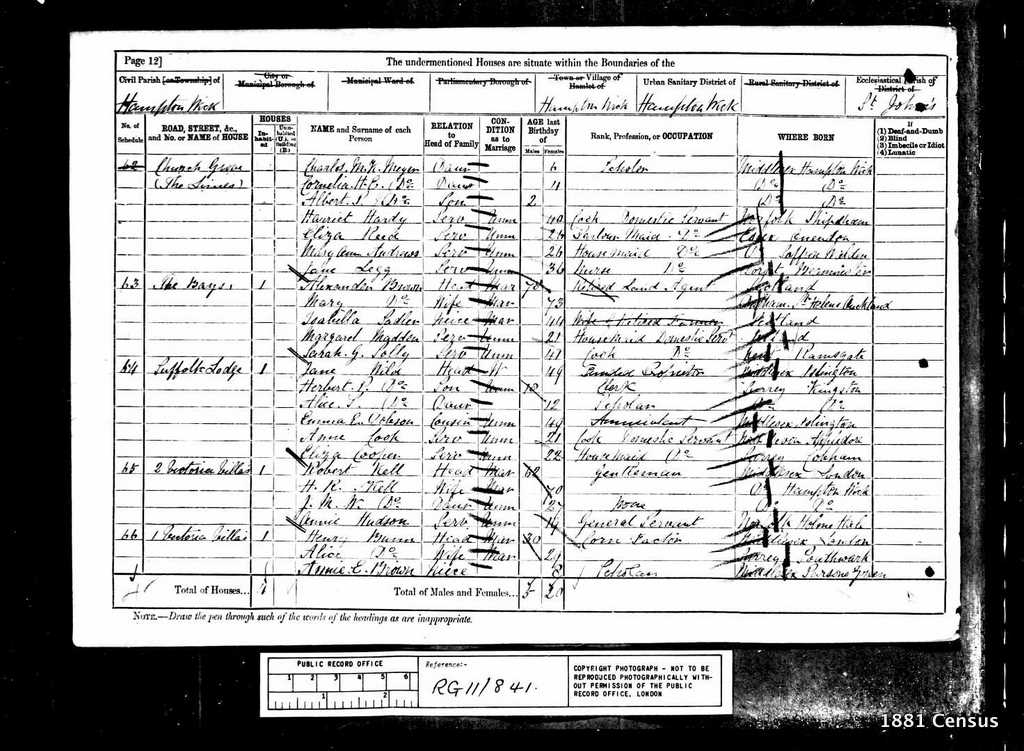 Page 12]
The undermentioned Houses are situate within the Boundaries of the
Civil Parish [or Township] of
City or Municipal Borough of
Municipal Ward of
Parliamentary Borough of
Town or Village of Hamlet of
Urban Sanitary District of
Rural Sanitary District of
Ecclesiastical Parish of District of
Hampton Wick Hampton Wick Hampton Wick St John's
No. of Schedule
ROAD, STREET, &c., and No. or NAME of HOUSE
HOUSES
Inhabited
Uninhabited (U.), or Building (B.)
NAME and Surname of each Person
RELATION to Head of Family
CONDITION as to Marriage
AGE last Birthday of
Males Females
Rank, Profession, or OCCUPATION
WHERE BORN
If
(1) Deaf-and-Dumb
(2) Blind
(3) Imbecile or Idiot
(4) Lunatic
62 Church Grove Charles M. K. Meyer Daur 6 Scholar Middlesex Hampton Wick
(The Limes) Cornelia H. C. Do Daur Do Do
Albert Do Son 2 Do Do
Harriet Hardy Serv Unm 40 Cook Domestic Servant Norfolk Shipdham
Eliza Reed Serv Unm 26 Parlour Maid Do Essex
Mary Ann Andrews Serv Unm 26 House maid Do Do Saffron Walden
Jane Legg Serv Unm 36 Nurse Do Dorset
63 The Bays 1 Alexander Brown Head Mar Retired Land Agent Scotland
Mary Do Wife Mar 73 Durham St Helens Auckland
Isabella Sadler Neice Mar 44 Wife of Retired Farmer Scotland
Margaret Madden Serv Unm 21 Housemaid Domestic Serv
Sarah G. Solly Serv Unm 41 Cook Do Kent Ramsgate
64 Suffolk Lodge 1 Jane Wild Head W 49 Middlesex Islington
Herbert P. Do Son Unm 18 Clerk Surrey Kingston
Alice Do Daur 12 Scholar Do Do
Emma E. Cousin Unm 49 Annuitant Middlesex Islington
Annie Cook Serv Unm 21 Cook Domestic Servant
Eliza Cooper Serv Unm 22 Housemaid Do Surrey Cobham
65 2 Victoria Villas 1 Robert Kell Head Mar 62 Gentleman Middlesex London
H. K. Kell Wife Mar 70 Do Hampton Wick
J. M. W. Do Daur Unm 27 Do Do
Annie Hudson Serv Unm 19 General Servant Norfolk
66 1 Victoria Villas 1 Henry Head Mar 30 Corn Factor Middlesex London
Alice Do Wife Mar 29 Surrey Southwark
Annie E. Brown Neice 8 Scholar Middlesex Parsons Green
Total of Houses... Total of Males and Females... 5 20
NOTE.—Draw the pen through such of the words of the headings as are inappropriate.
PUBLIC RECORD OFFICE
1 2 3 4 5 6
1 2
Reference:-
RG 11/841.
COPYRIGHT PHOTOGRAPH - NOT TO BE
REPRODUCED PHOTOGRAPHICALLY WITH-
OUT PERMISSION OF THE PUBLIC
RECORD OFFICE, LONDON
1881 Census